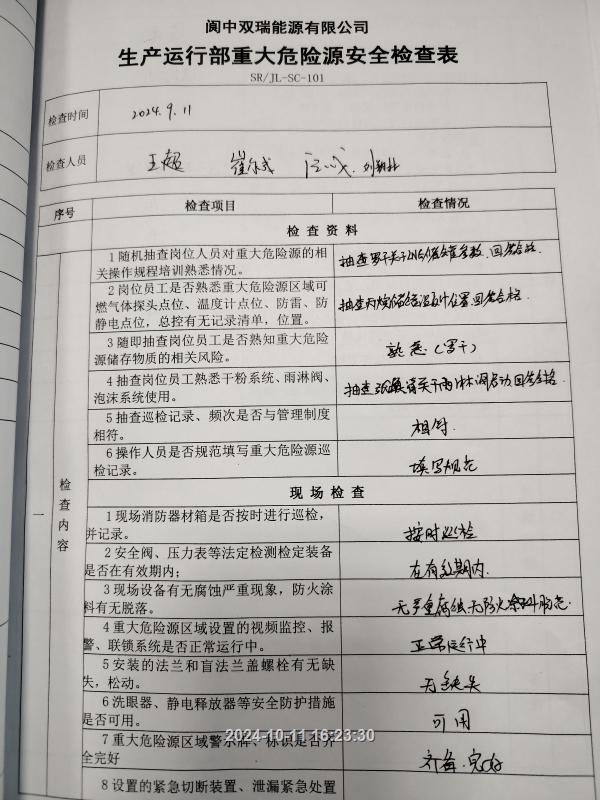 阆中双瑞能源有限公司
生产运行部重大危险源安全检查表
SR/JL-SC-101
检查时间
2024.9.11
检查人员
王超
序号
检查项目
检查情况
检查资料
1随机抽查岗位人员对重大危险源的相
关操作规程培训熟悉情况。
抽查罗干关于LNG储罐参数.回答合格.
2岗位员工是否熟悉重大危险源区域可
燃气体探头点位、温度计点位、防雷、防
静电点位，总控有无记录清单，位置。
抽查丙烷储罐温度计位置.回答合格.
3随即抽查岗位员工是否熟知重大危险
源储存物质的相关风险。
熟悉（罗干）
4抽查岗位员工熟悉干粉系统、雨淋阀、
泡沫系统使用。
抽查 关于雨淋阀启动.回答合格.
5抽查巡检记录、频次是否与管理制度
相符。
相符.
6操作人员是否规范填写重大危险源巡
检记录。
填写规范
一
检查内容
现场检查
1现场消防器材箱是否按时进行巡检，
并记录。
按时巡检
2安全阀、压力表等法定检测检定装备
是否在有效期内；
在有效期内.
3现场设备有无腐蚀严重现象，防火涂
料有无脱落。
无严重腐蚀.无防火涂料脱落.
4重大危险源区域设置的视频监控、报
警、联锁系统是否正常运行中。
正常运行中
5安装的法兰和盲法兰盖螺栓有无缺
失，松动。
无缺失
6洗眼器、静电释放器等安全防护措施
是否可用。
可用
7重大危险源区域警示牌、标识是否齐
全完好
齐备.完好
8设置的紧急切断装置、泄漏紧急处置
2024-10-11 16:23:30